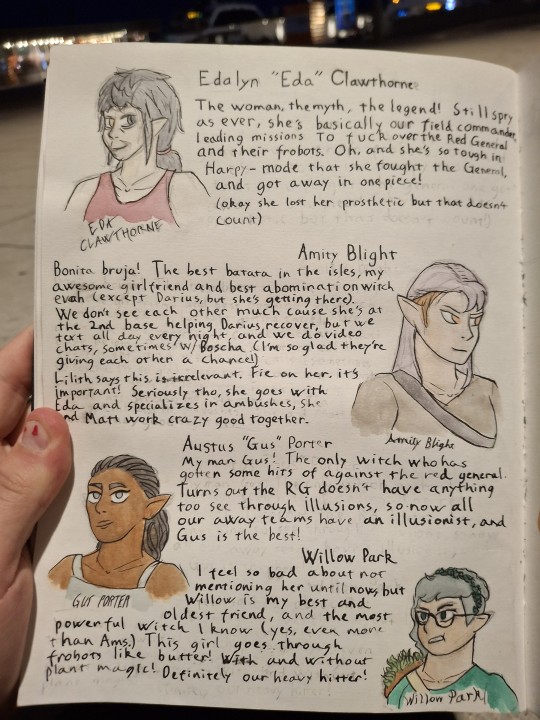 Edalyn "Eda" Clawthorne
The woman, the myth, the legend! Still spry
as ever, she's basically our field commander,
leading missions To fuck over the Red General
and their frobots. Oh, and she's so tough in
Harpy-mode that she fought the General,
and got away in one piece!
(okay she lost her prosthetic but that doesn't
count)
EDA
CLAWTHORNE
Amity Blight
Bonita bruja! The best batata in the isles, my
awesome girlfriend and best abomination witch
evah (except Darius, but she's getting there).
We don't see each other much cause she's at
the 2nd base helping Darius recover, but we
text all day every night, and we do video
chats, sometimes w/ Boscha (I'm so glad they're
giving each other a chance!)
Lilith says this is irrelevant. Fie on her, it's
Important! Seriously tho, she goes with
Eda and specializes in ambushes, she
and Matt work crazy good together.
Amity Blight
Austus "Gus" Porter
My man Gus! The only witch who has
gotten some hits of against the red general.
Turns out the RG doesn't have anything
too see through illusions, so now all
our away teams have an illusionist, and
Gus is the best!
GUS PORTER
Willow Park
I feel so bad about not
mentioning her until now, but
Willow is my best and
oldest friend, and the most
powerful witch I know (yes, even more
than Ams.) This girl goes through
frobots like butter! With and without
plant magic! Definitely our heavy hitter!
Willow Park